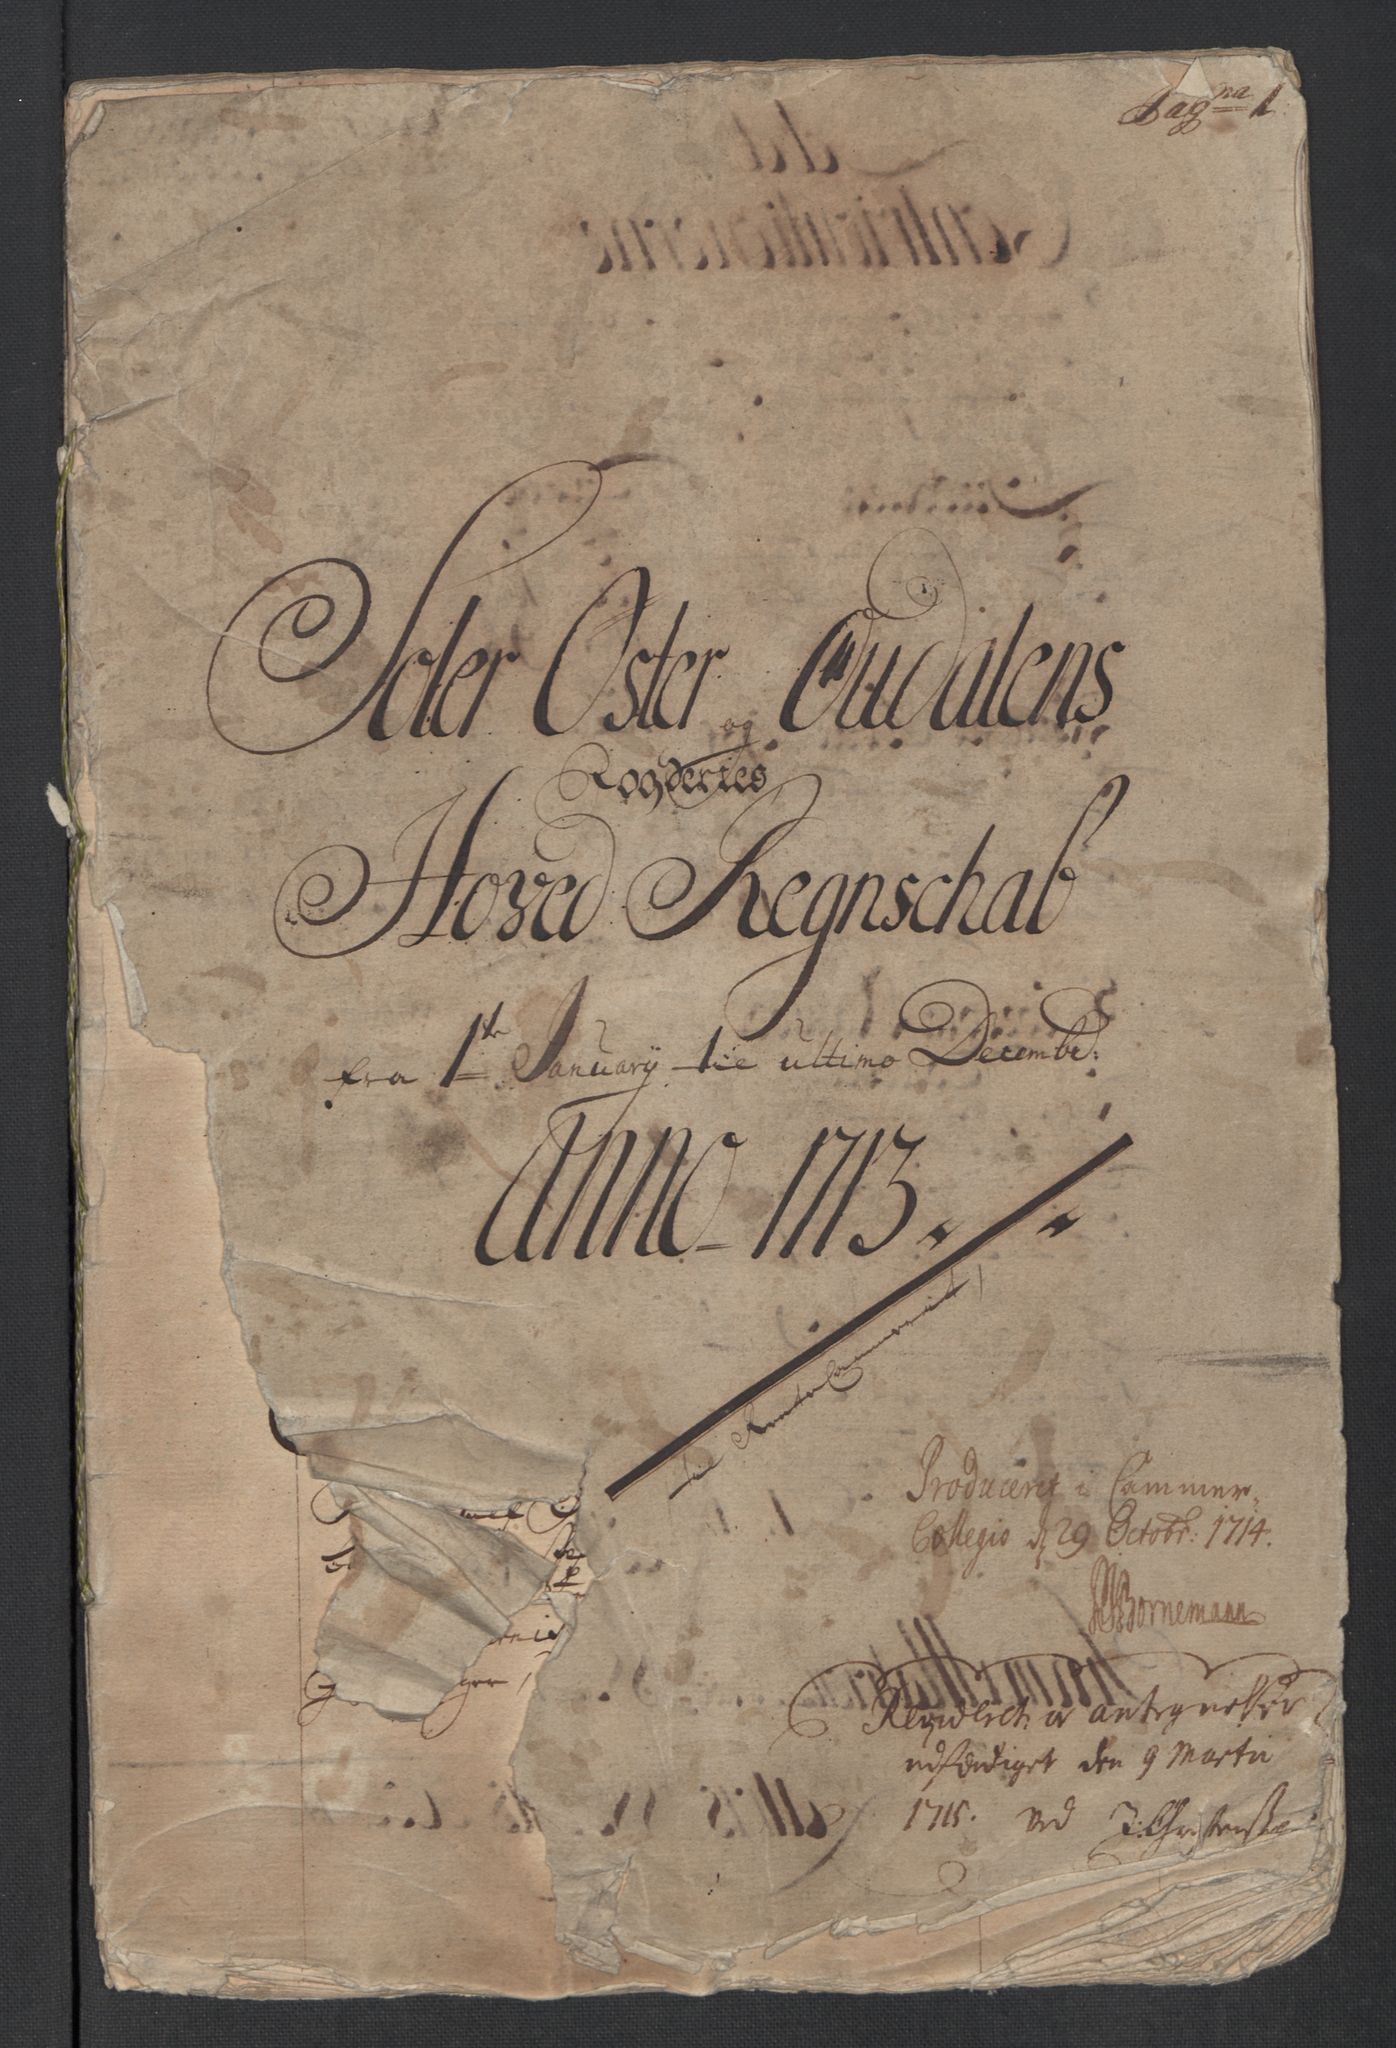 Pag<sup>na</sup> 1
Soler Oster og Oudalens
Fogderies
Hoved Regnschab
fra 1te January til ultimo Decembr:
Anno 1713.
til Rente Cammeret
Produceret i Cammer
Collegio d 29 Octobr: 1714.
Bornemann
Revideret og antegnelser
udferdiget den 9 Martii
1715. ved J: Christensen